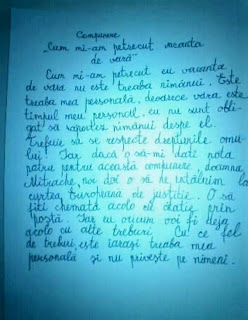 Compunere
„Cum mi-am petrecut vacanta
de vară"
Cum mi-am petrecut eu vacanta
de vara nu este treaba nimănui. Este
treaba mea personală, deoarece vara este
timpul meu personal. eu nu sunt obli-
gat să raportez nimănui despre el.
Trebuie să se respecte drepturile omu
lui! Iar dacă o să-mi dati nota
patru pentru această compunere, doamna
Mitrache, noi doi o să ne întâlnim la
curtea Europeana de justitie. O să
fiti chemată acolo cu citatie prin
postă. Iar eu oricum voi fi deja
acolo cu alte treburi. Cu ce fel
de treburi, este iarasi treaba mea
personală si nu priveste pe nimeni.